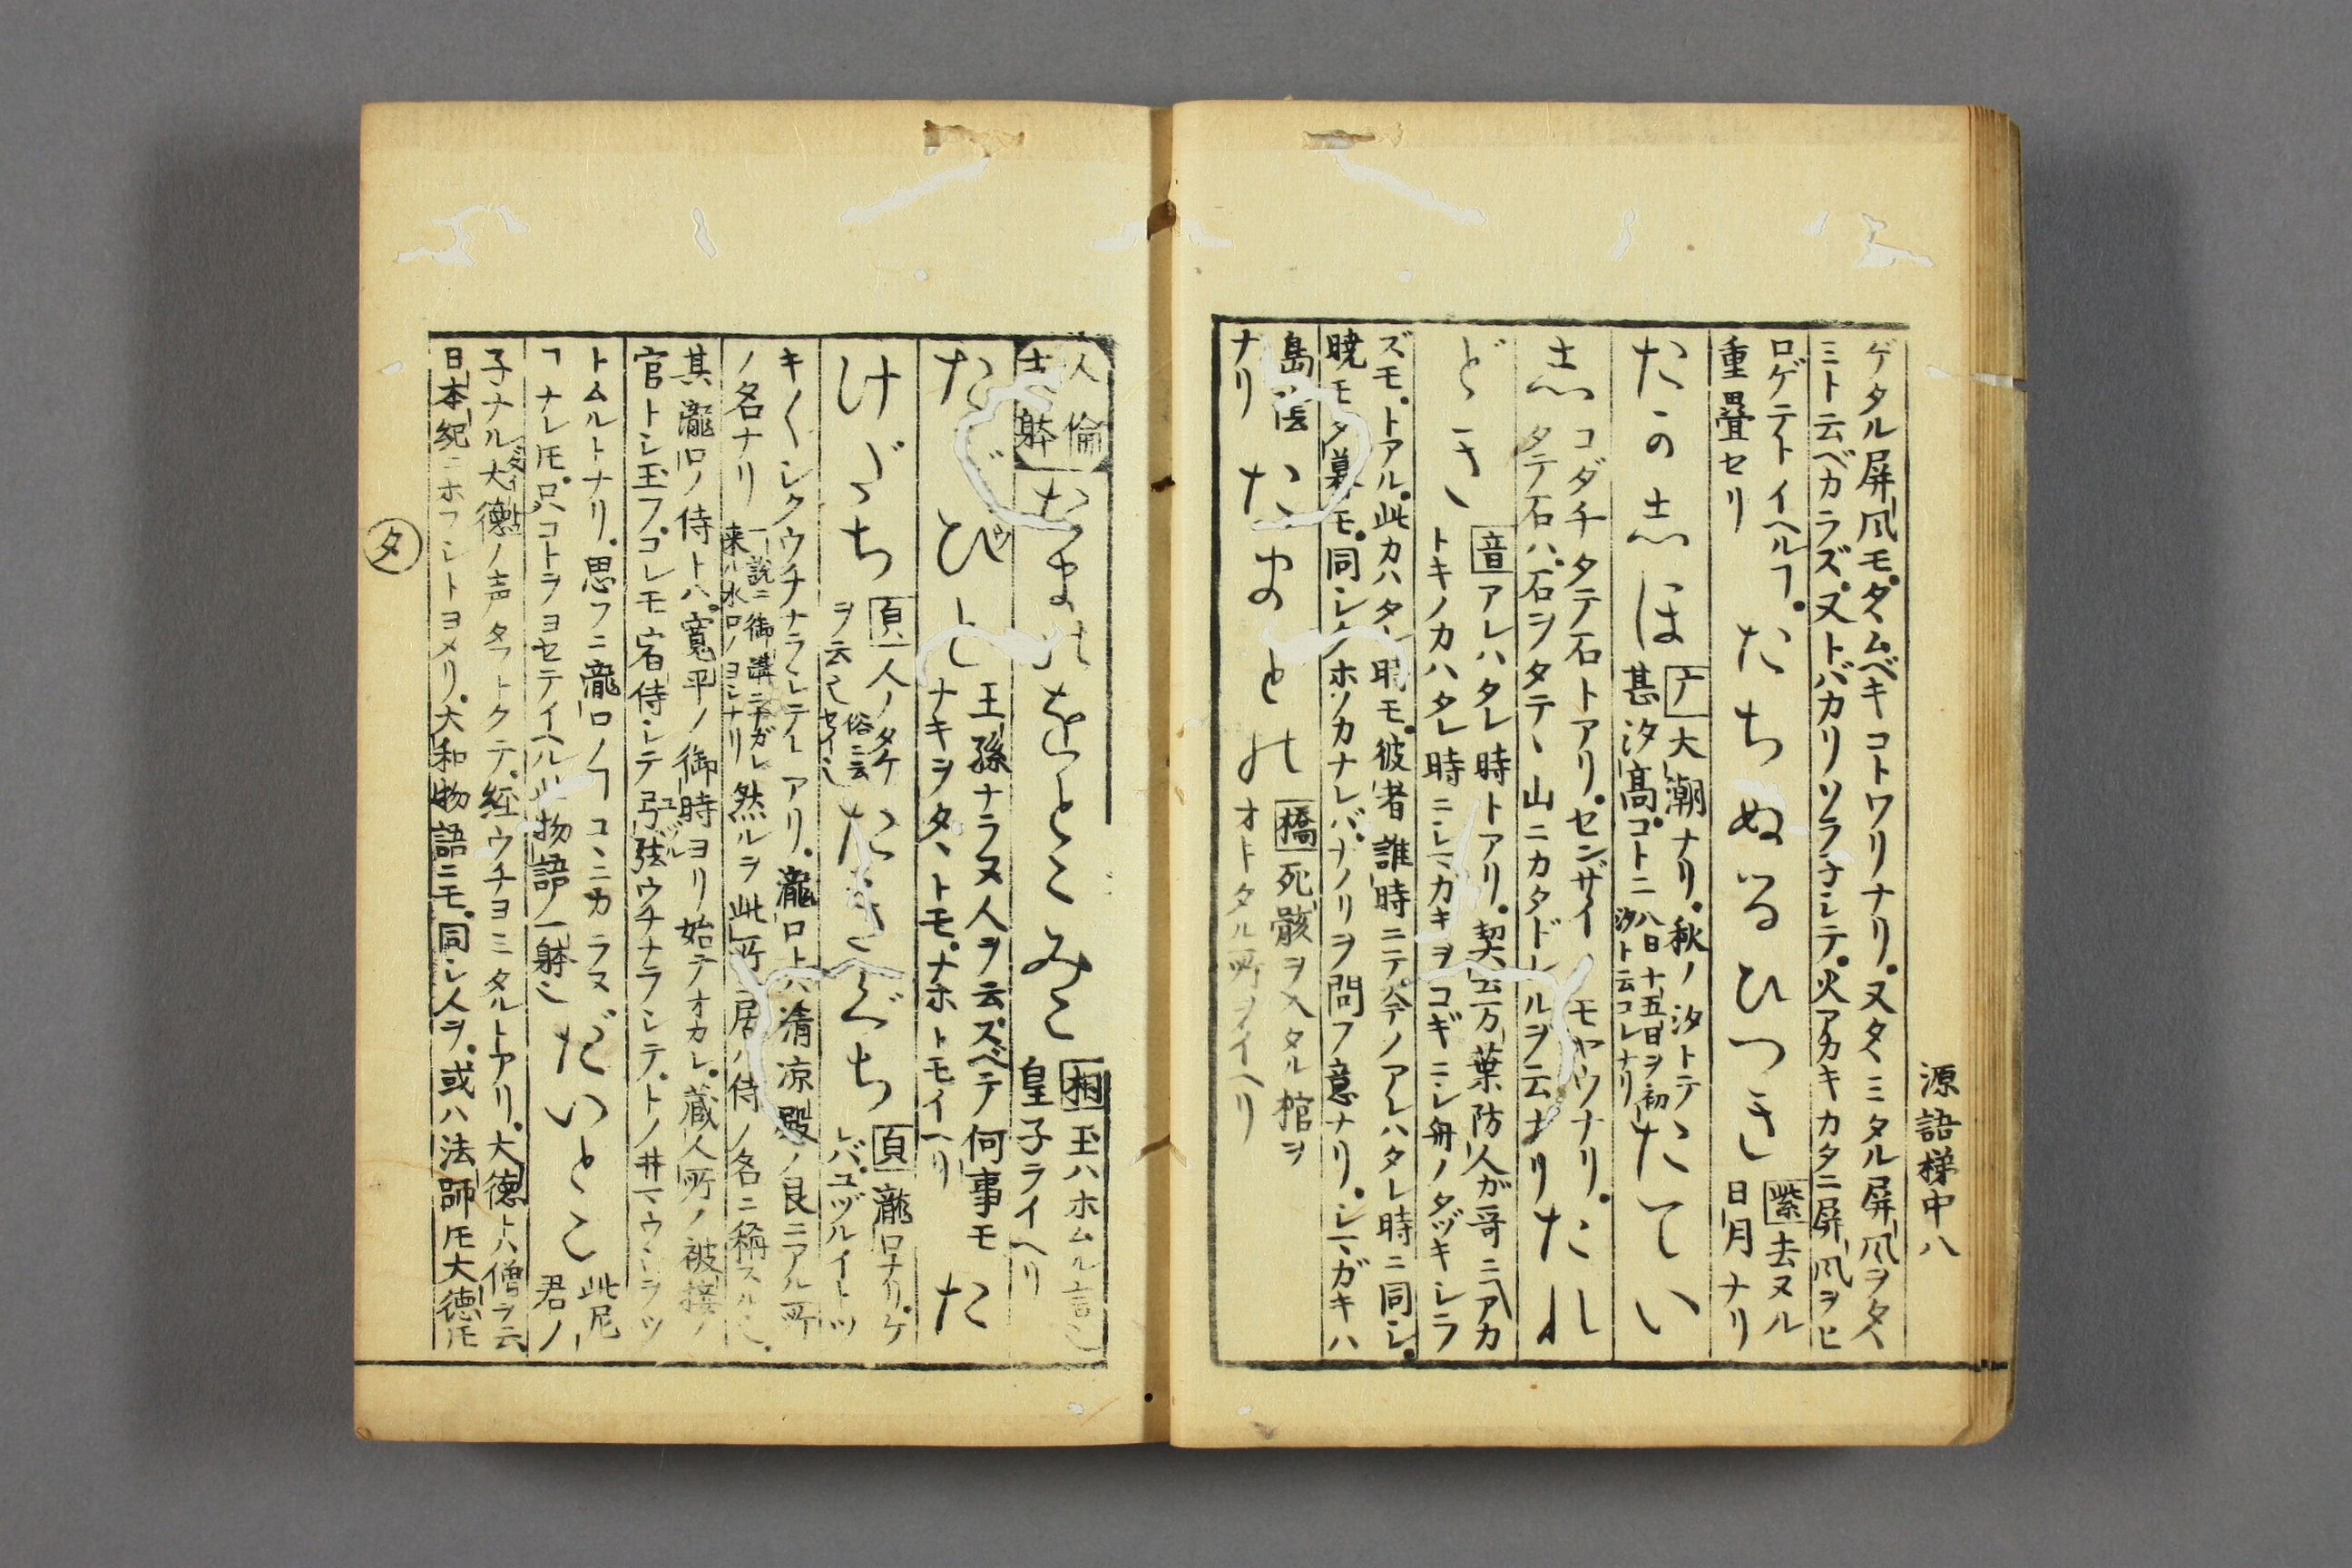 源語梯中八
ゲタル屏風モ。タヽムベキコトワリナリ。又タヽミタル屏風ヲタヽ
ミト云ベカラズ。又トバカリソラ シテ。火アカキカタニ屏風ヲヒ
ロゲテトイヘルヿ。
重畳セリ
たちぬるひつき
紫 去ヌル
日月ナリ
たかしほ
大潮ナリ。秋ノ汐トテ
甚汐高コトニ
八日十五日ヲ初
汐ト云コレナリ
たてい
し
コダチタテ石トアリ。センザイノモヤウナリ。
タテ石ハ。石ヲタテヽ山ニカタドルヲ云ナリ
たれ
どき
音 アレハタレ時トアリ。契云万葉防人が哥ニアカ
トキノカハタレ時ニシマガキヲコギニシ舟ノタヅキシラ
ズモ。トアル。此カハタヽ時モ。彼者誰時ニテ。今ノアレハタレ時ニ同シ。
暁モタ暮モ。同シクホノカナレバ。ナノリヲ問フ意ナリ。シマガキハ
島陰
ナリ
たまどの
橋 死骸ヲ入タル棺ヲ
オトタル所ヲイヘリ
人倫
支躰
たまのをとこみこ
相 玉ハホムル言也
皇子ライヘリ
たゞびと
王孫ナラヌ人ヲ云ズベテ何事モ
ナキヲタヽトモ。ナホトモイヘリ
た
けだち
頁 人ノタケ
ヲ云也
俗ニ云
セイ也
たきぐち
頁 瀧口ナリ。ケ
バユヅルイトツ
キ〱シクウチナラシテトアリ。瀧口トハ清凉殿ノ艮ニアル所
ノ名ナリ
一説ニ御溝ニナガレ
来ル水口ノヨシナリ
然ルヲ此所ニ居ル侍ノ名ニ稱スル也。
其瀧口ノ侍トハ。寛平ノ御時ヨリ始テオカレ。蔵人所ノ被接ノ
官トシ玉フ。コレモ宿侍シテ弓弦ウチナラシテ。トノ井マウシヲツ
トムルトナリ。思フニ瀧口ノヿコヽニカラヌ
ヿナレ𪜈。只コトヲヨセテイヘル此物語ノ一躰也
だいとこ
此尼
君ノ
子ナル大德ノ声タフトクテ。経ウチヨミタルトアリ。大德トハ僧ヲ云
日本紀ニホフシトヨメリ。大和物語ニモ。同シ人ヲ。或ハ法師𪜈大德𪜈
タ